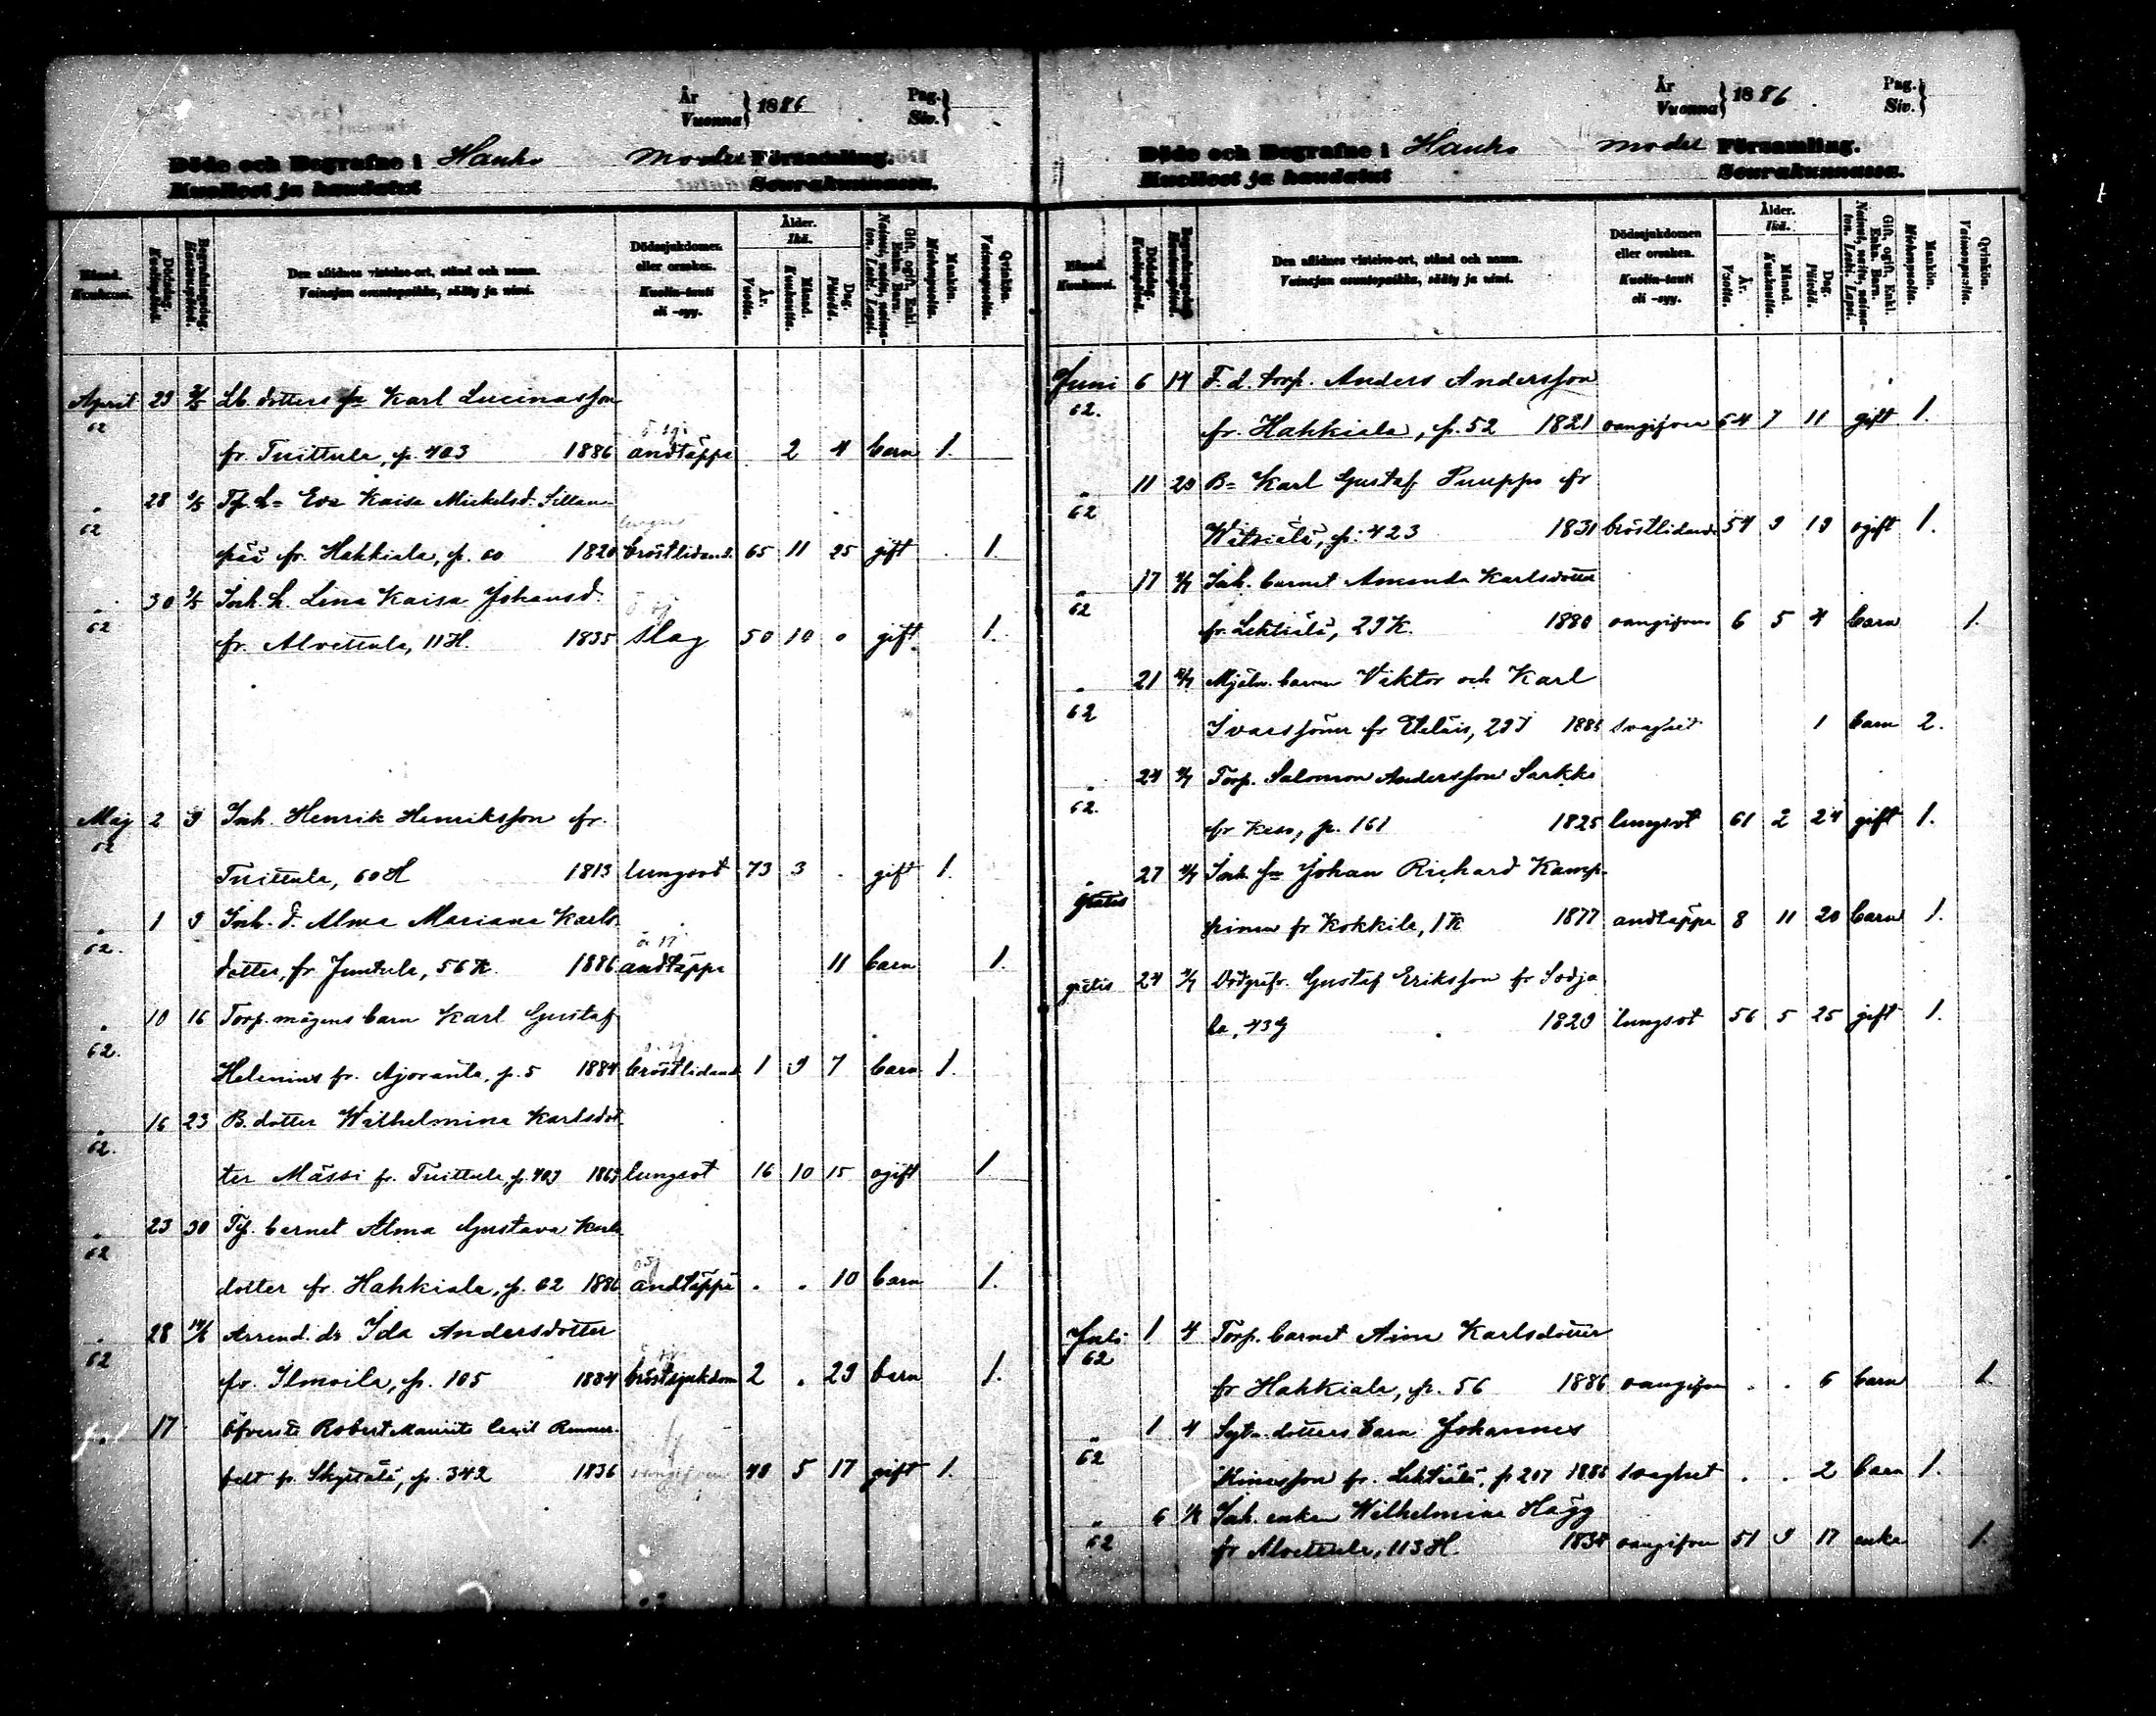 År
Vuonna } 1886
Pag.
Siv. }
Döde och Begrafne i Hauho moder Församling.
Kuolleet ja haudatut Seurakunnassa.
Månad. Kuukausi.
Dödsdag. Kuolinpäivä.
Begrafningsdag. Hautauspäivä.
Den aflidnes vistelse-ort, stånd och namn.
Vainajan asuntopaikka, sääty ja nimi.
Dödssjukdomen eller orsaken.
Kuolin-tauti eli -syy.
Ålder. Ikä.
År. Vuotta.
Månad. Kuukautta.
Dag. Päivää.
Gift, ogift, Enkl. Enka. Barn.
Mankön. Miehenpuolta.
Qvinkön. Vaimonpuolta.
April 29 2/5 Lb. dotters sn Karl Lucinasson
62 fr. Tuittula, p. 403 1886 andtäppa 2 4 barn 1.
28 9/5 Tp. h= Eva Kaisa Mickelsd. Sillan-
62 pää fr. Hahkiala, p. 60 1820 bröstlidand. 65 11 25 gift 1.
30 9/5 Inh. h. Lena Kaisa Johansd.
62 fr. Alvettula, 11 H. 1835 slag 50 10 0 gift. 1.
Maj 2 9 Inh. Henrik Henriksson fr.
62 Tuittula, 60 H 1813 lungsot 73 3 . gift 1.
1 9 Inh. d. Alma Mariana Karls
62. dotter, fr. Juntula, 56 K. 1886 andtäppa 11 barn 1.
10 16 Torp. mågens barn Karl Gustaf
62. Helenius fr. Ajoranta, p. 5 1884 bröstlidand 1 9 7 barn 1.
16 23 B. dotter Wilhelmina Karlsdot-
62. ter Mässi fr. Tuittula, p. 403 1869 lungsot 16 10 15 ogift 1.
23 30 Tp. barnet Alma Gustava Karls
62 dotter fr. Hahkiala, p. 62 1886 andtäppa . . 10 barn 1.
28 14/6 Arrend. dr Ida Andersdotter
62 fr. Ilmoila, p. 105 1884 bröstsjukdom 2 . 29 barn 1.
17 Öfverste Robert Maurits Cecil Rennerfelt fr. Skyttälä, p. 342 1836 49 5 17 gift 1.
År
Vuonna } 1886
Pag.
Siv. }
Döde och Begrafne i Hauho moder Församling.
Kuolleet ja haudatut Seurakunnassa.
Månad. Kuukausi.
Dödsdag. Kuolinpäivä.
Begrafningsdag. Hautauspäivä.
Den aflidnes vistelse-ort, stånd och namn.
Vainajan asuntopaikka, sääty ja nimi.
Dödssjukdomen eller orsaken.
Kuolin-tauti eli -syy.
Ålder. Ikä.
År. Vuotta.
Månad. Kuukautta.
Dag. Päivää.
Gift, ogift, Enkl. Enka. Barn.
Mankön. Miehenpuolta.
Qvinkön. Vaimonpuolta.
Juni 6 14 F. d. torp. Anders Andersson
62. fr. Hahkiala, p. 52 1821 oangifven 64 7 11 gift 1.
11 20 B= Karl Gustaf Puuppo fr
62 Witsiälä, p. 423 1831 bröstlidande 54 9 19 ogift 1.
17 4/7 Inh. barnet Amanda Karlsdotter
62 fr. Lehtiälä, 29 K. 1880 oangifven 6 5 4 barn 1.
21 Mjöln. barnen Viktor och Karl
62 Ivarssöner fr Eteläis, 29 I 1886 svaghet 1 barn 2.
24 4/7 Torp. Salomon Andersson Sarkka
62. fr p. 161 1825 lungsot 61 2 24 gift 1.
27 4/7 Inh. sn Johan Richard Kamp-
gratis pinen fr Kokkila, 1 K 1877 andtäppa 8 11 20 barn 1.
gratis 24 4/7 Gustaf Eriksson fr Sodja
la, 43 G 1829 lungsot 56 5 25 gift 1.
Juli 1 4 Torp. barnet Aina Karlsdotter
62 fr Hahkiala, p. 56 1886 oangifven . . 6 barn 1.
1 4 Sytn. dotters barn Johannes
62 fr. Lehtiälä, p 207 1886 svaghet . . 2 barn 1.
6 Inh. enkan Wilhelmina Hägg
62 fr Alvettula, 113 H. 1834 oangifven 51 9 17 enka 1.